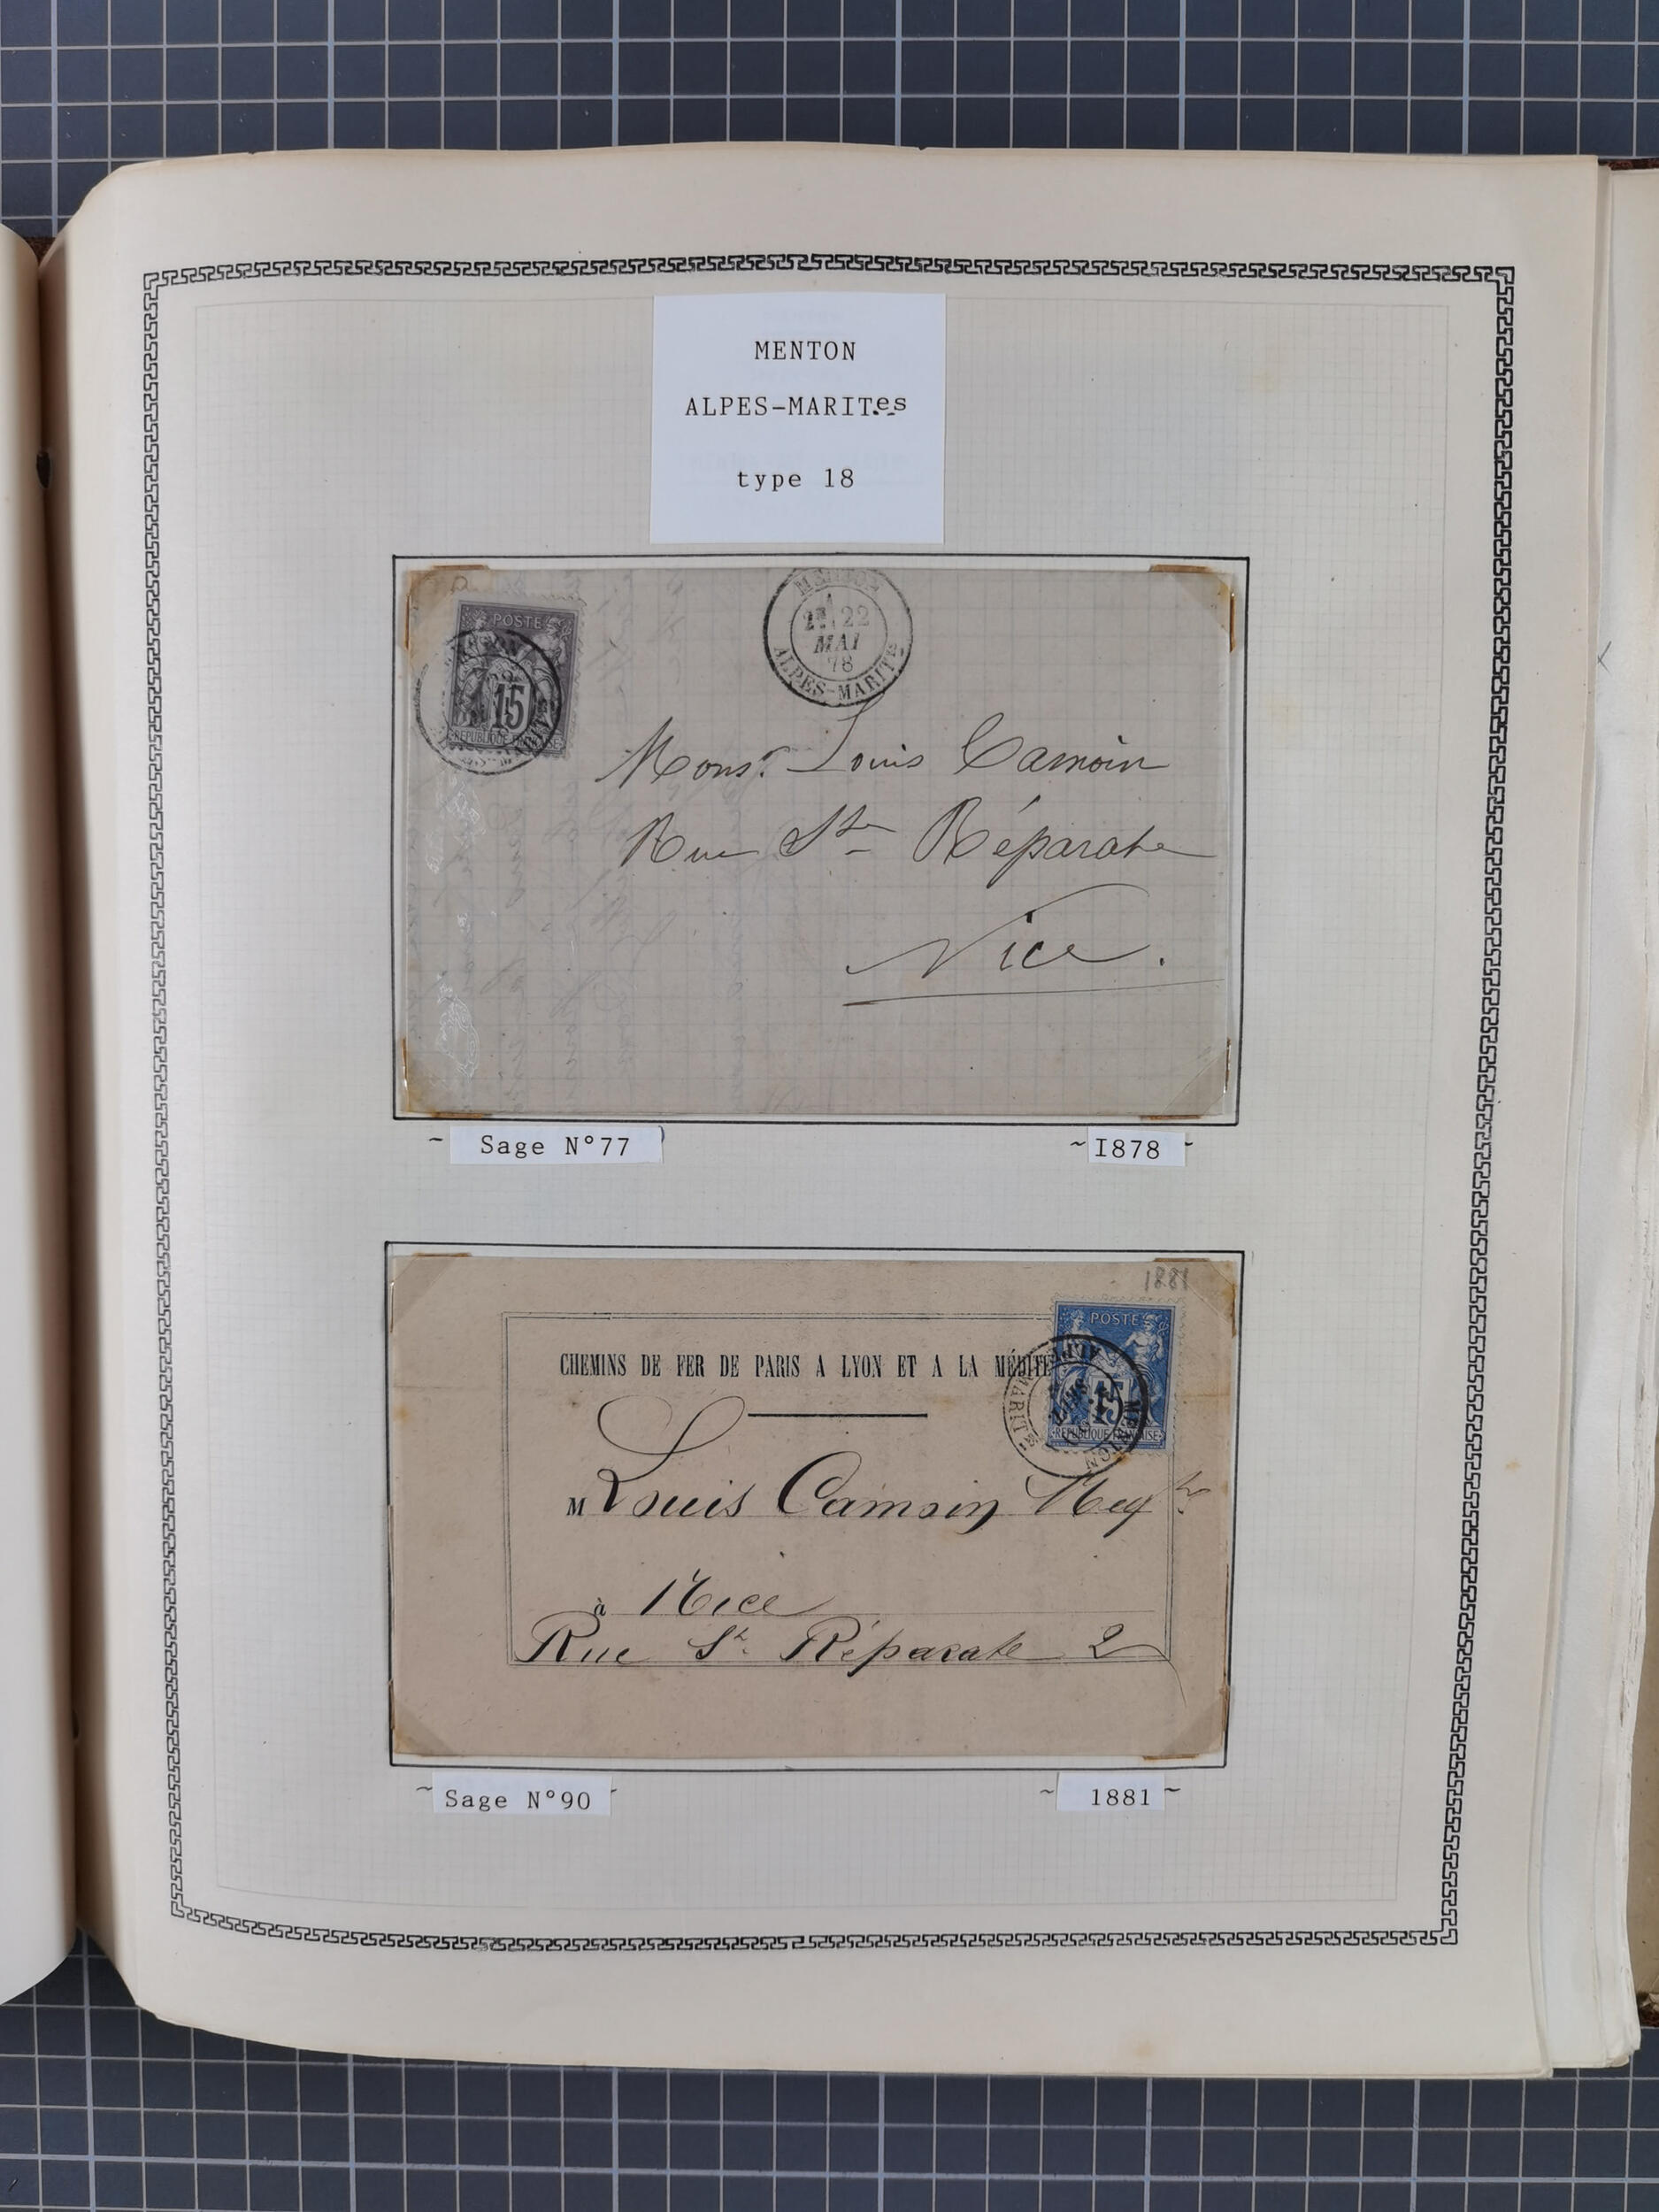 MENTON
ALPES-MARIT.es
type 18
POSTE
15
REPUBLIQUE FRANÇAISE
MENTON
22
MAI
78
ALPES-MARITES
Monsr. Louis Camoin
Rue Ste Réparate
Nice.
~ Sage N°77
~ I878 ~
1881
POSTES
15
REPUBLIQUE FRANÇAISE
MENTON
MARITES
CHEMINS DE FER DE PARIS A LYON ET A LA MÉDITE
M Louis Camoin Negt
à Nice
Rue Ste Réparate 2
~ Sage N°90 ~
~ 1881 ~